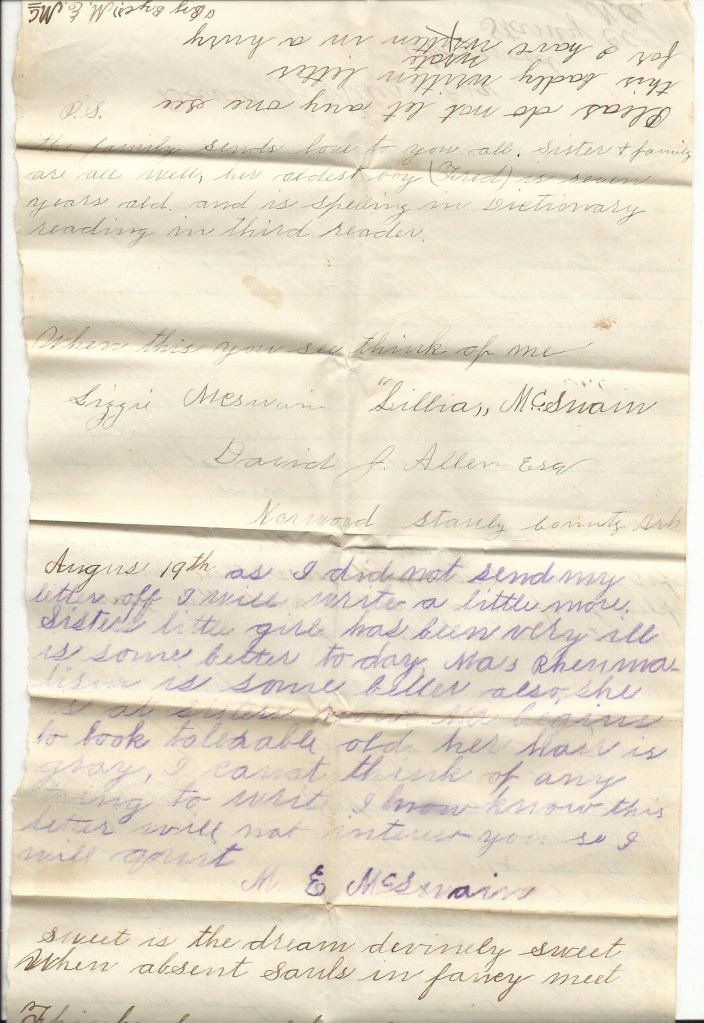 P.S.
Pleas do not let any one see
this badly written letter
for I have wrote written in a hurry
(By Bye) M. E. Mc
the family sends love to you all. Sister & family
are all well, her oldest boy (Fred) is seven
years old. and is speling in Dictionary
reading in third reader.
When this you see think of me
Lizzie McSwain "Lillia" McSwain
David J. Allen Esq
Norwood Stanly County Ark
Augus 19th as I did not send my
letter off I will write a little more.
Sisters little girl has been very ill
is some better to day, Ma's Rheuma-
tism is some better also, she
is at sisters now. Ma begins
to look tolerable old her Hair is
gray, I canot think of any
thing to write I know know this
leter will not interest you so I
will quit
M. E McSwain
Sweet is the dream devinely sweet
When absent Souls in fancy meet